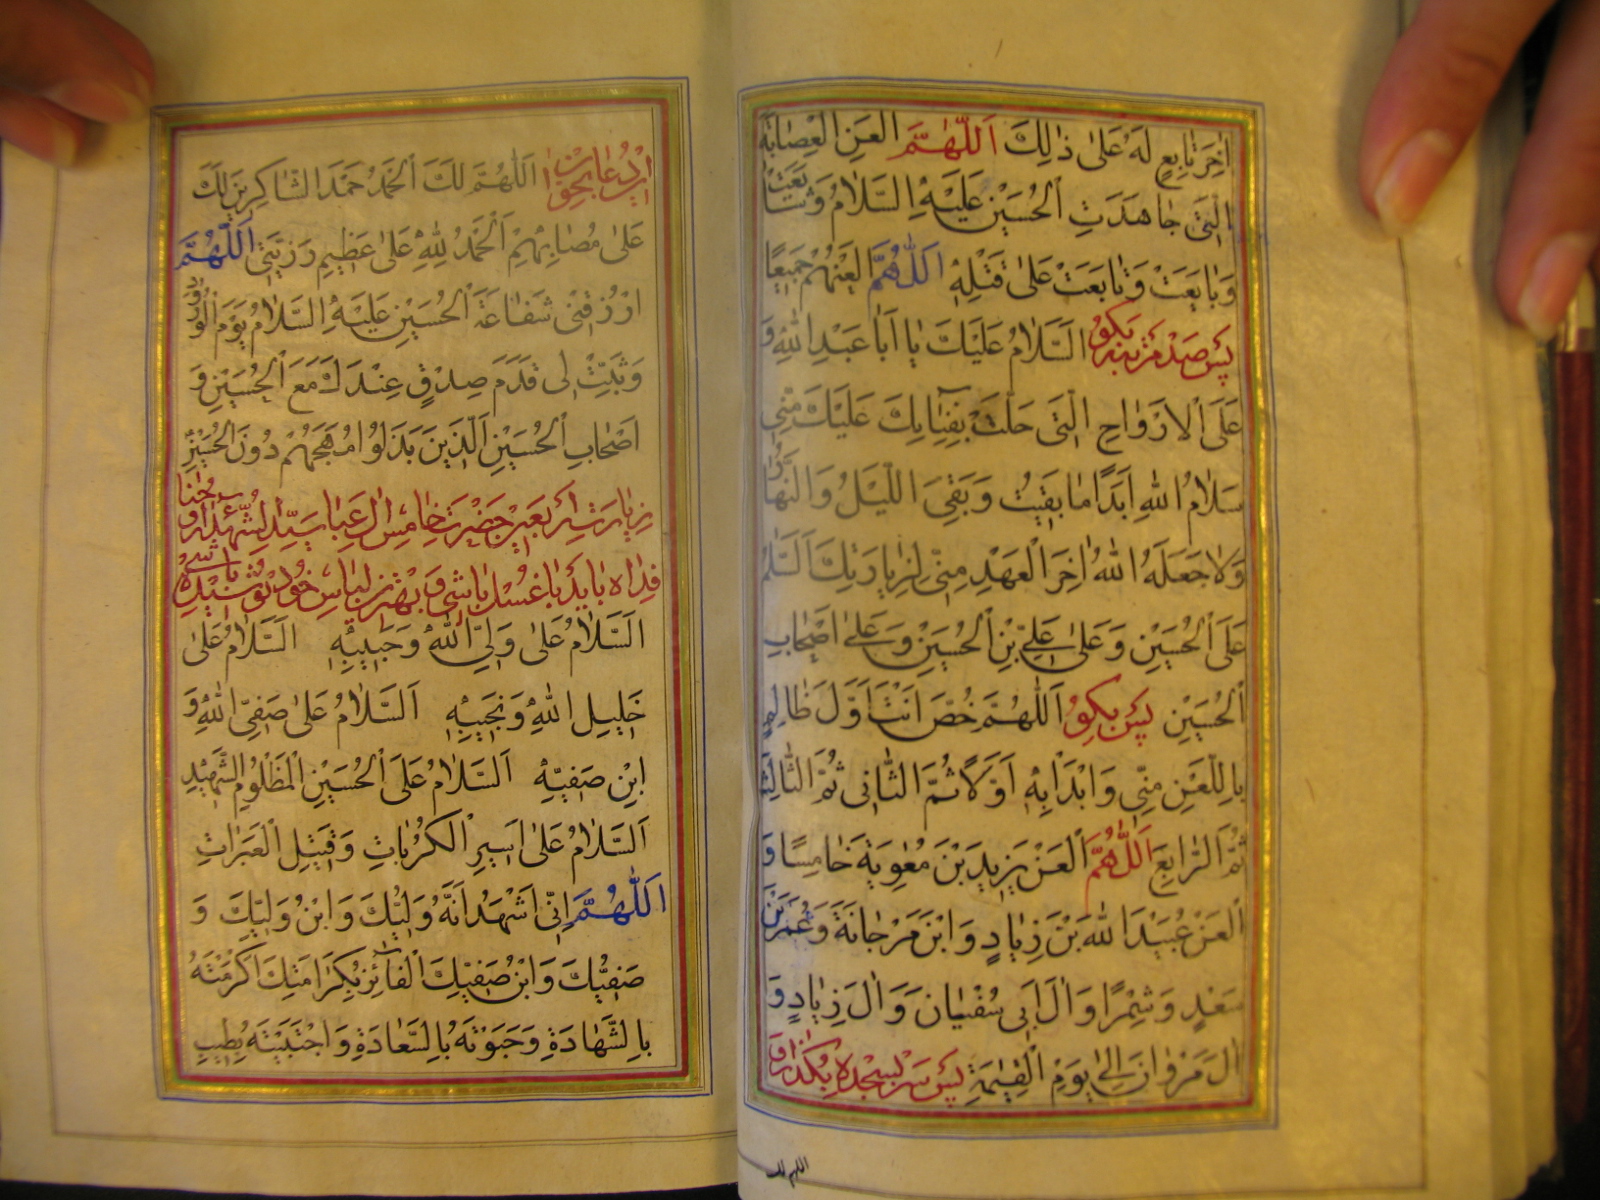 اٰخِرَ تٰابِعٍ لَهُ عَلىٰ ذٰلِكَ اَللّٰهُمَّ الْعَنِ الْعِصٰابَةَ
الَّتى جٰاهَدَتِ الْحُسَيْنَ عَلَيْهِ السَّلٰامُ وَشٰايَعَتْ
وَبٰايَعَتْ وَتٰابَعَتْ عَلىٰ قَتْلِهِ اَللّٰهُمَّ الْعَنْهُمْ جَميعًا
پس صد مرتبه بگو اَلسَّلٰامُ عَلَيْكَ يٰا اَبٰا عَبْدِ اللّٰهِ وَ
عَلَى الْاَرْوٰاحِ الَّتى حَلَّتْ بِفِنٰائِكَ عَلَيْكَ مِنّى
سَلٰامُ اللّٰهِ اَبَدًا مٰا بَقيتُ وَبَقِىَ اللَّيْلُ وَالنَّهٰارُ
وَلٰا جَعَلَهُ اللّٰهُ اٰخِرَ الْعَهْدِ مِنّى لِزِيٰارَتِكَ اَلسَّلٰامُ
عَلَى الْحُسَيْنِ وَعَلىٰ عَلِىِّ بْنِ الْحُسَيْنِ وَعَلىٰ اَصْحٰابِ
الْحُسَيْنِ پس بگو اَللّٰهُمَّ خُصَّ اَنْتَ اَوَّلَ ظٰالِمٍ
بِاللَّعْنِ مِنّى وَابْدَأْ بِهِ اَوَّلًا ثُمَّ الثّٰانى ثُمَّ الثّٰالِثَ
ثُمَّ الرّٰابِعَ اَللّٰهُمَّ الْعَنْ يَزيدَ بْنَ مُعٰوِيَةَ خٰامِسًا وَ
الْعَنْ عُبَيْدَ اللّٰهِ بْنَ زِيٰادٍ وَابْنَ مَرْجٰانَةَ وَعُمَرَ بْنَ
سَعْدٍ وَشِمْرًا وَاٰلَ اَبى سُفْيٰانَ وَاٰلَ زِيٰادٍ وَ
اٰلَ مَرْوٰانَ اِلىٰ يَوْمِ الْقِيٰمَةِ پس سر بسجده بگذار و
اللهم لك
این دعا بخوان اَللّٰهُمَّ لَكَ الْحَمْدُ حَمْدَ الشّٰاكِرينَ لَكَ
عَلىٰ مُصٰابِهِمْ اَلْحَمْدُ لِلّٰهِ عَلىٰ عَظيمِ رَزِيَّتى اَللّٰهُمَّ
ارْزُقْنى شَفٰاعَةَ الْحُسَيْنِ عَلَيْهِ السَّلٰامُ يَوْمَ الْوُرُودِ
وَثَبِّتْ لى قَدَمَ صِدْقٍ عِنْدَكَ مَعَ الْحُسَيْنِ وَ
اَصْحٰابِ الْحُسَيْنِ الَّذينَ بَذَلُوا مُهَجَهُمْ دُونَ الْحُسَيْنِ
زيارت اربعين حضرت خامس آل عبا سيد الشهدا روحنا
فداه بايد با غسل باشى و بهترين لباس خود پوشيده باشى
اَلسَّلٰامُ عَلىٰ وَلِىِّ اللّٰهِ وَحَبيبِهِ اَلسَّلٰامُ عَلىٰ
خَليلِ اللّٰهِ وَنَجيبِهِ اَلسَّلٰامُ عَلىٰ صَفِىِّ اللّٰهِ وَ
ابْنِ صَفِيِّهِ اَلسَّلٰامُ عَلَى الْحُسَيْنِ الْمَظْلُومِ الشَّهيدِ
اَلسَّلٰامُ عَلىٰ اَسيرِ الْكُرُبٰاتِ وَقَتيلِ الْعَبَرٰاتِ
اَللّٰهُمَّ اِنّى اَشْهَدُ اَنَّهُ وَلِيُّكَ وَابْنُ وَلِيِّكَ وَ
صَفِيُّكَ وَابْنُ صَفِيِّكَ الْفٰائِزُ بِكَرٰامَتِكَ اَكْرَمْتَهُ
بِالشَّهٰادَةِ وَحَبَوْتَهُ بِالسَّعٰادَةِ وَاجْتَبَيْتَهُ بِطيبِ